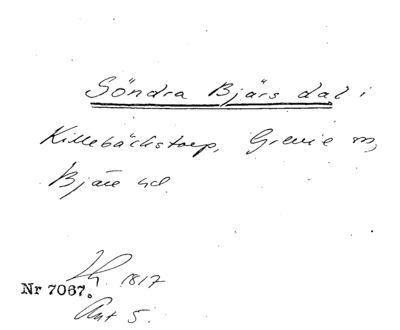 Söndra Bjärs dal i
Killebäckstorp, Grevie sn,
Bjäre hd
Lh. 1817
Nr 7067.
Ant 5.